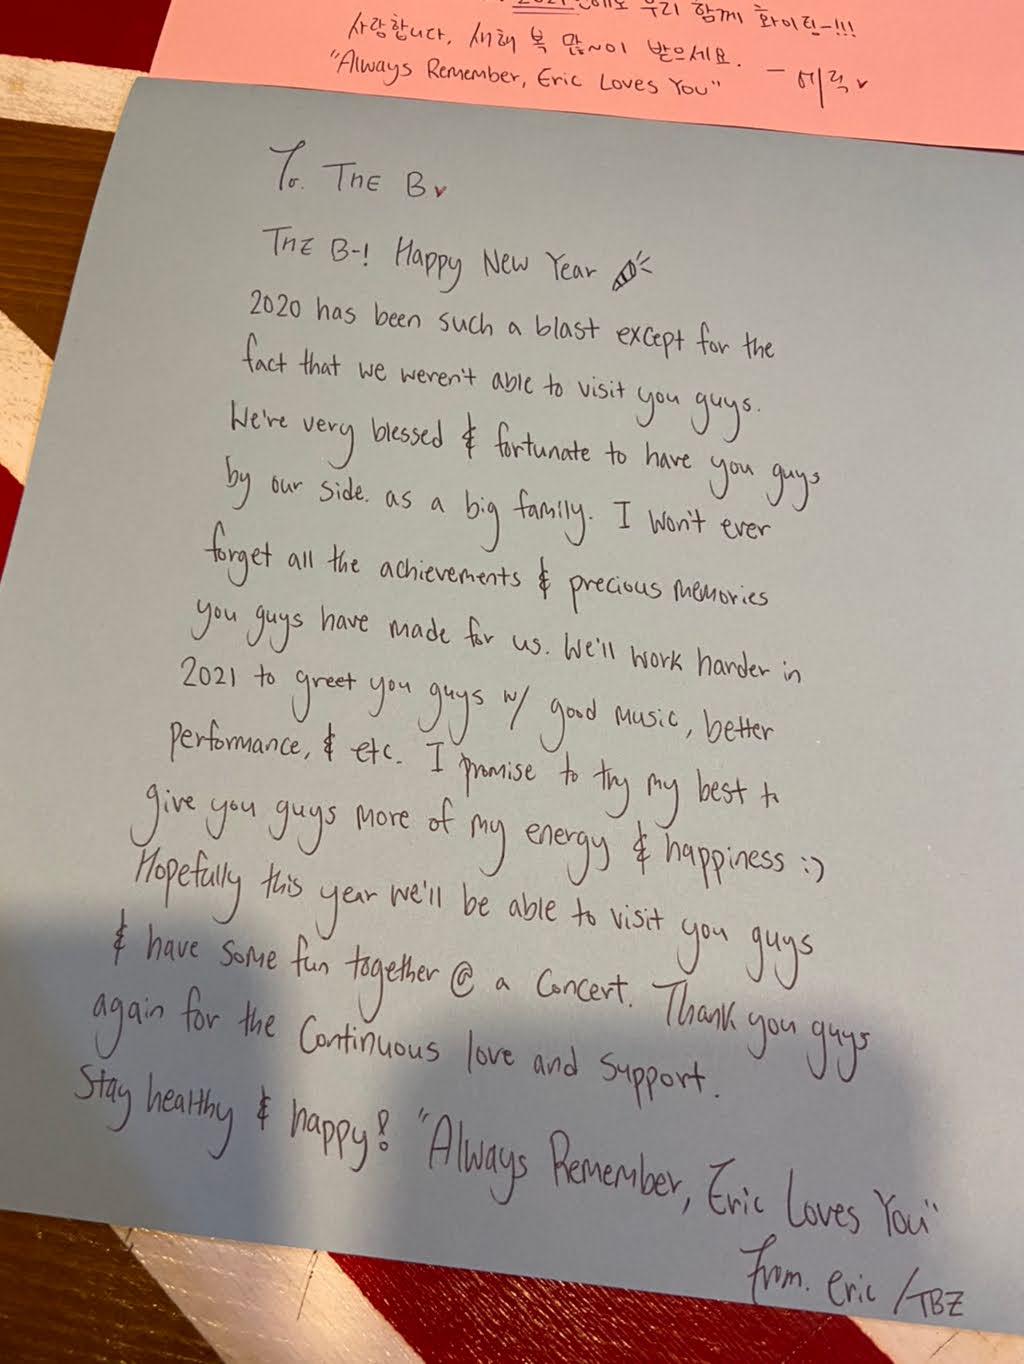 2021년에도 우리 함께 화이팅-!!!
사랑합니다, 새해 복 많~이 받으세요.
"Always Remember, Eric Loves You" - 에릭♥
To. THE B♥
THE B-! Happy New Year
2020 has been such a blast except for the
fact that we weren't able to visit you guys.
We're very blessed & fortunate to have you guys
by our side. as a big family. I won't ever
forget all the achievements & precious memories
you guys have made for us. We'll work harder in
2021 to greet you guys w/ good music, better
performance, & etc. I promise to try my best to
give you guys more of my energy & happiness :)
Hopefully this year we'll be able to visit you guys
& have some fun together @ a concert. Thank you guys
again for the continuous love and support.
Stay healthy & happy! "Always Remember, Eric Loves You"
From. eric /TBZ